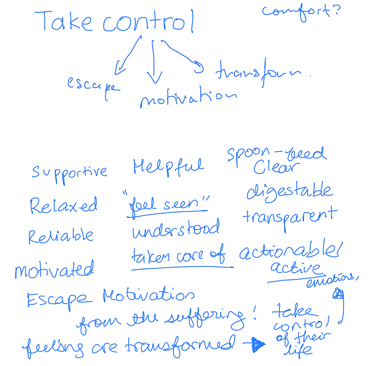 comfort?
Take control
escape
transform.
motivation
Supportive Helpful spoon-feed
Clear
Relaxed "feel seen" digestable
Reliable understood transparent
motivated taken care of actionable/
active
emotions,
Escape Motivation
from the suffering! take
control
feeling are transformed → of their
life